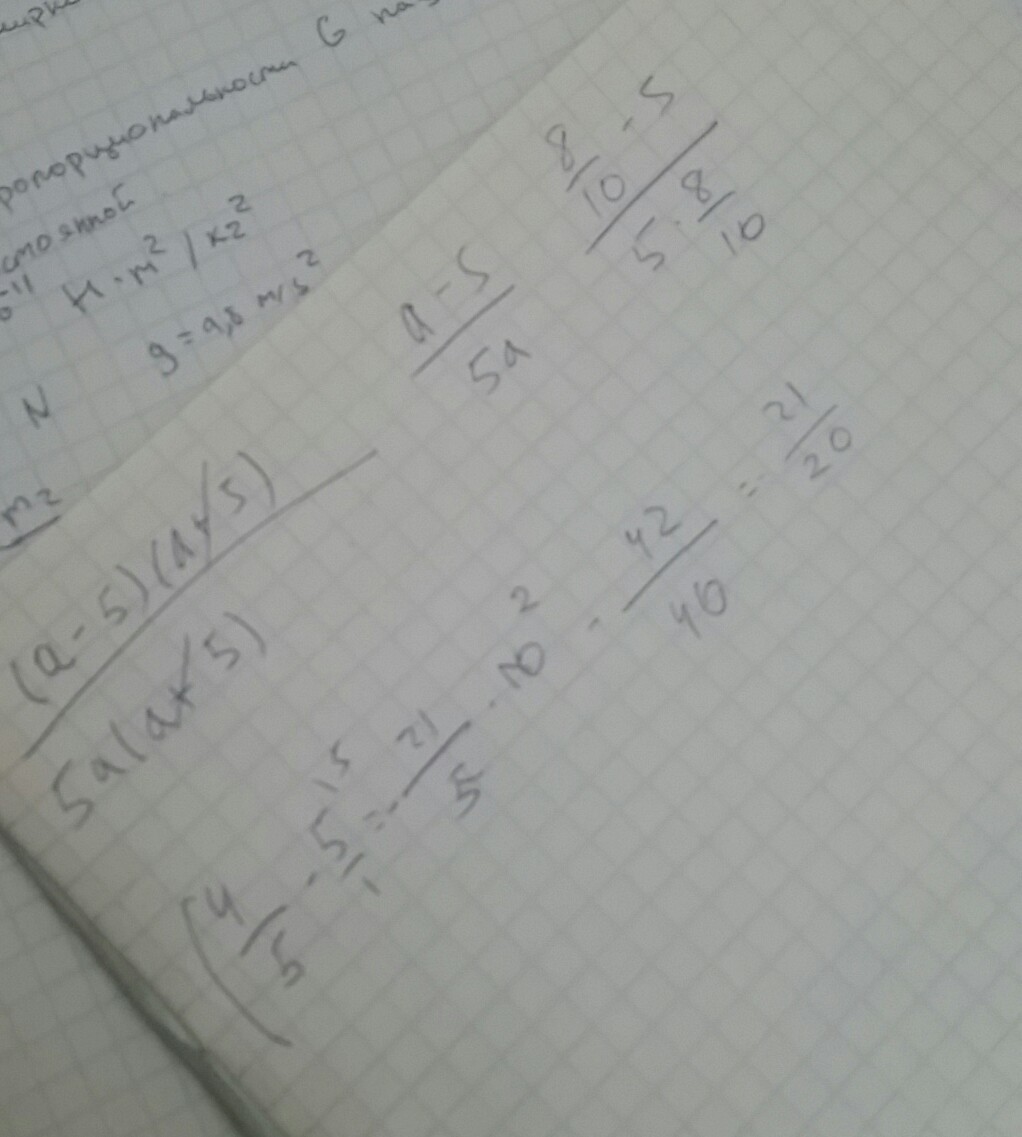 ропорциональности G на
стоянной
H·m²/кг²
g = 9,8 m/s²
N
m₂
(a - 5)(a + 5) / 5a(a + 5)
a - 5 / 5a
8/10 - 5 / 5 · 8/10
(4/5 - 5/1 = - 21/5 · 10 - 42/40 = - 21/20